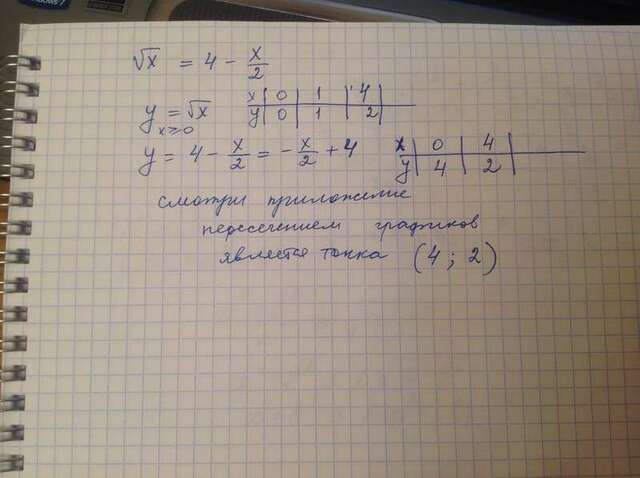 √x = 4 - x/2
y = √x
x≥0
x | 0 | 1 | 4 |
y | 0 | 1 | 2 |
y = 4 - x/2 = -x/2 + 4
x | 0 | 4 |
y | 4 | 2 |
смотри приложение
пересечением графиков
является точка (4; 2)